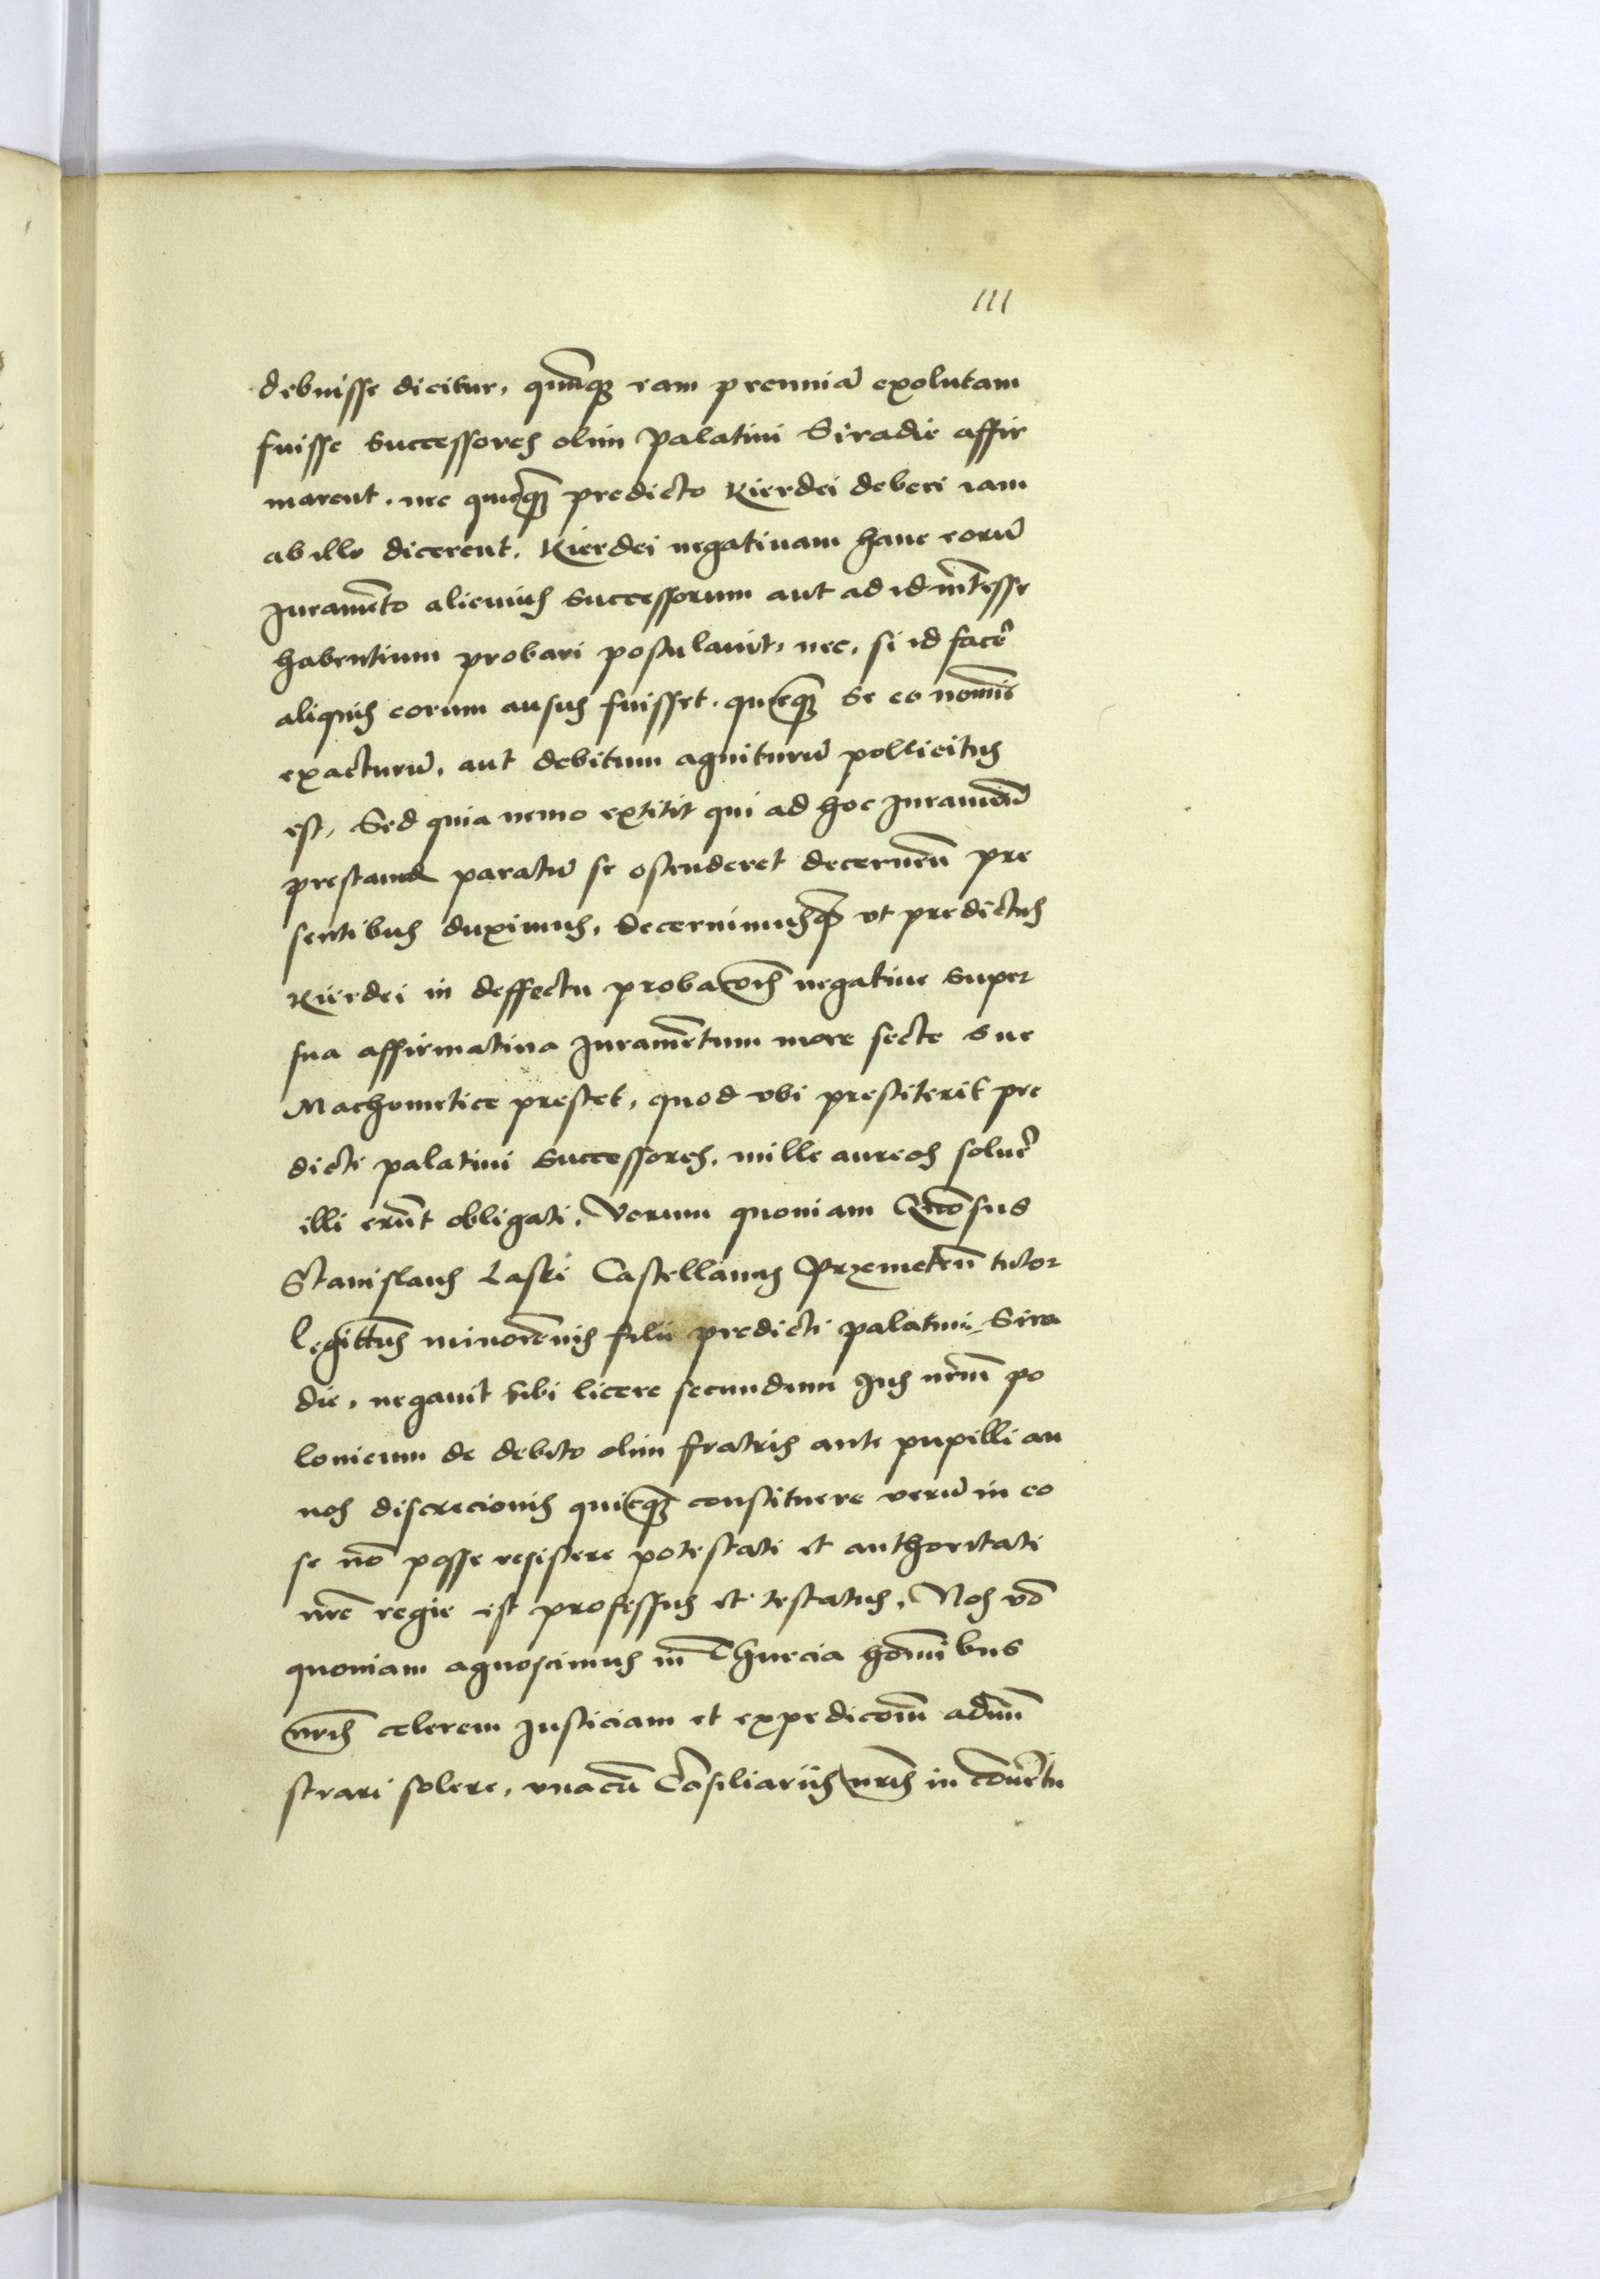 111
debuisse dicitur, qumq̃ eam pecuniã exolutam
fuisse Successores olim Palatini Siradie affir
marent, nec quicq̃ predicto Kierdei deberi iam
ab illo dicerent. Kierdei negatiuam hanc eorũ
Iuramẽto alicuius Successorum aut ad id intẽsse
habentium probari postulauit, nec, si id facẽ
aliquis eorum ausus fuisset, quicq̃ Se eo nomĩe
exacturũ, aut debitum agniturũ pollicitus
est, Sed quia nemo extitit qui ad hoc Iuramẽtũ
prestand paratũ se ostenderet decernẽn pre
sentibus duximus, decernimusq̃ vt predictus
Kierdei in deffectu probacõis negatiue Super
sua affirmatiua Iuramẽtum more secte Sue
Machometice prestet, quod vbi prestiterit pre
dicti palatini Successores, mille aureos soluẽ
illi erũt obligati. Verum quoniam
Stanislaus Laski Castellanus Przemetẽn tutor
legittĩs minorẽnis filii predicti palatini Sira
die, negauit sibi licere secundum Ius nr̃m po
lonicum de debito olim fratris ante pupilli an
nos discrecionis quicq̃ constituere verũ in eo
se nõ posse resistere potestati et authoritati
nr̃e regie est professus et testatus. Nos vo
quoniam agnoscimus in Thurcia homĩbus
nr̃is celerem Iusticiam et expedicõm admĩ
strari solere, vnacũ Cõsiliariis nr̃is in cõuẽtu